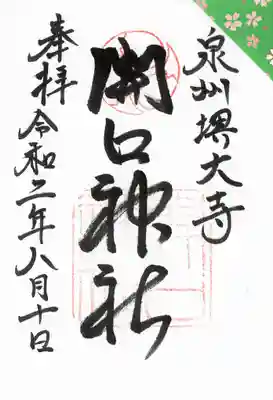 泉州堺大寺
開口神社
奉拝 令和二年八月十日